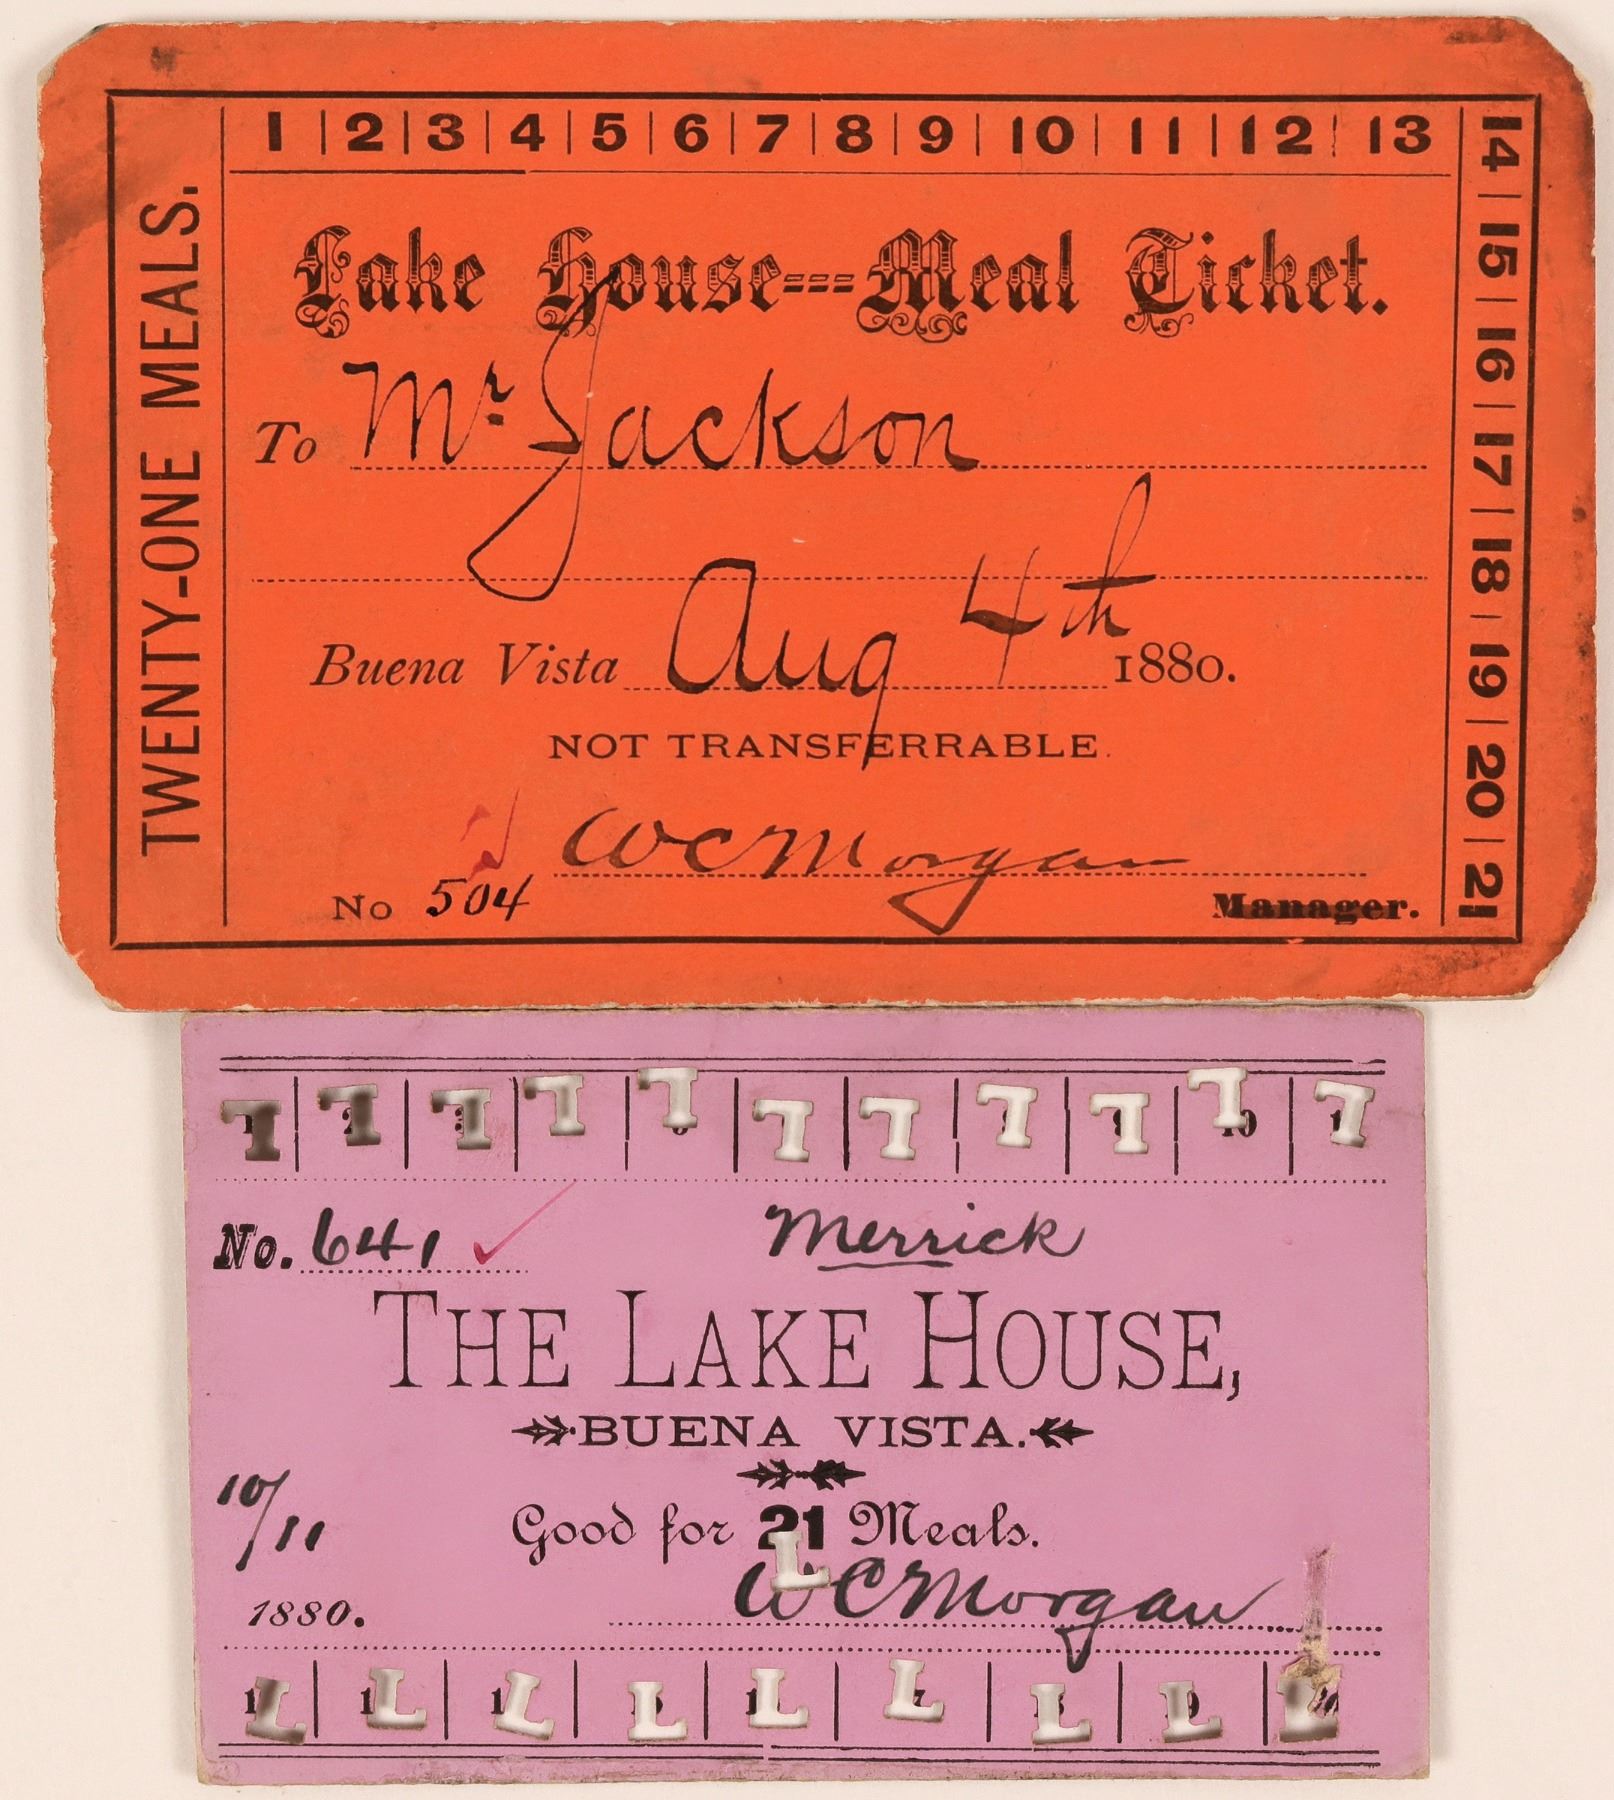 1 | 2 | 3 | 4 | 5 | 6 | 7 | 8 | 9 | 10 | 11 | 12 | 13
14 | 15 | 16 | 17 | 18 | 19 | 20 | 21
TWENTY-ONE MEALS.
Lake House---Meal Ticket.
To Mr Jackson
Buena Vista Aug 4th 1880.
NOT TRANSFERRABLE.
WCMorgan
No 504 Manager.
No. 641 Merrick
THE LAKE HOUSE,
BUENA VISTA.
10/11
Good for 21 Meals.
1880. WCMorgan